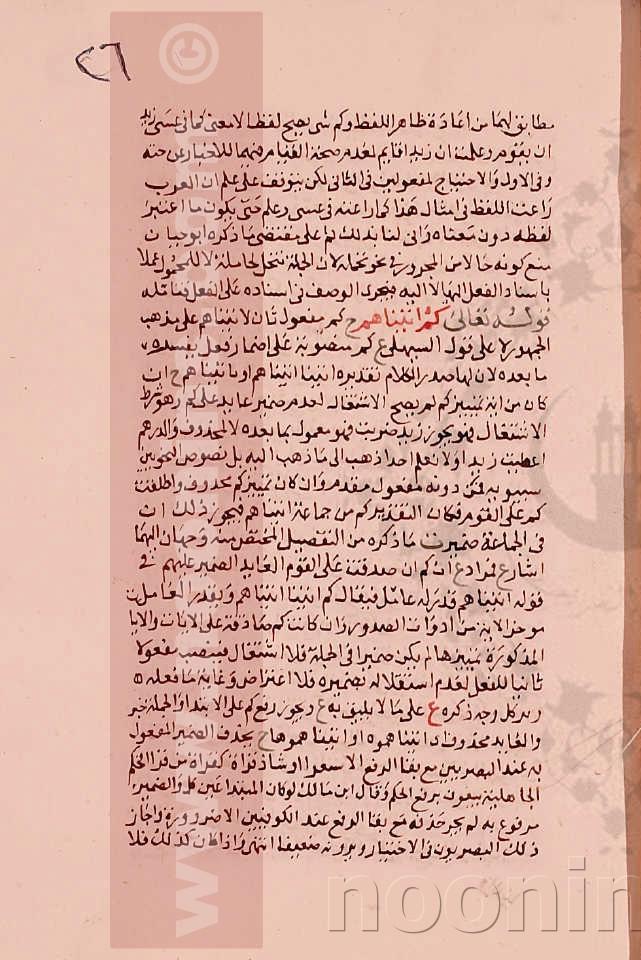 ٢٦
مطابق لهما من اعادة ظاهر اللفظ وكم شى يصح لفظا لا معنى كما فى عسى زيد
ان يقوم وعلمت ان زيدا قايم لعدم صحة القيام فيهما للاخبار عن جثة
وفى الاول والاحتياج لمفعولين فى الثانى لكن يتوقف على علم ان العرب
راعت اللفظ فى امثال هذا كما راعته فى عسى وعلم حتى يكون ما اعتبر
لفظه دون معناه وانى لنا بذلك ثم على مقتضى ما ذكره ابو حيان
منع كونه حالا من المجرور فى نحو لان الجملة لا للمجهول
باسناد الفعل اليها لا اليه فيجرى الوصف فى اسناده على الفعل فتامله
قوله تعالى كم اتيناهم ح كم مفعول ثان لاتيناهم على مذهب
الجمهور لا على قول السهيلى ع كم منصوبة على اضمار فعل يفسده
ما بعده لان لها صدر الكلام تقديره اتينا اتيناهم او ما اتيناهم ح ان
كان من اية تمييز كم لم يصح الاشتغال لعدم ضمير عايد على كم وهو شرط
الاشتغال فهو يجوز زيد ضربت فهو معمول بما بعده لا لمحذوف والدرهم
اعطيت زيدا ولا نعلم احدا ذهب الى ما ذهب اليه بل نصوص النحويين
سيبويه فمن دونه مفعول مقدم وان كان تمييز كم محذوف واطلقت
كم على القوم فكان التقدير كم من جماعة اتيناهم فيجوز ذلك ان
فى الجماعة ضميرت ما ذكره من التفصيل المختص منه وجهان اليهما
اشار ع فمراد ع ان كم ان صدقت على القوم العايد الضمير عليهم فى
قوله اتيناهم قدر له عامل فيقال كم اتينا اتيناهم ويقدر العامل
موخرا لانه من ادوات الصدور وان كانت كم صادقة على الايات والايا
المذكورة تمييزها لم يكن ضميرا فى الجملة فلا اشتغال فينصب مفعولا
ثانيا للفعل لعدم استقلاله بضميره فلا اعتراض وغاية ما فعله
رد كل وجه ذكره ع على ما لا يليق به ع ويجوز رفع كم على الابتداء والجملة خبر
والعايد محذوف اى اتيناهموه او اتيناهموها ح بحذف الضمير المفعول
به عند البصريين مع بقا الرفع الا شعرا او شاذ قراة كقراة من قرا افحكم
الجاهلية يبغون برفع الحكم وقال ابن مالك لو كان المبتدا غير كل والضمير
مرفوع به لم يجز حذفه مع بقا الرفع عند الكوفيين الا ضرورة واجاز
ذلك البصريون فى الاختيار ويرونه ضعيفا انتهى واذا كان كذلك فلا
©
www.
noonin